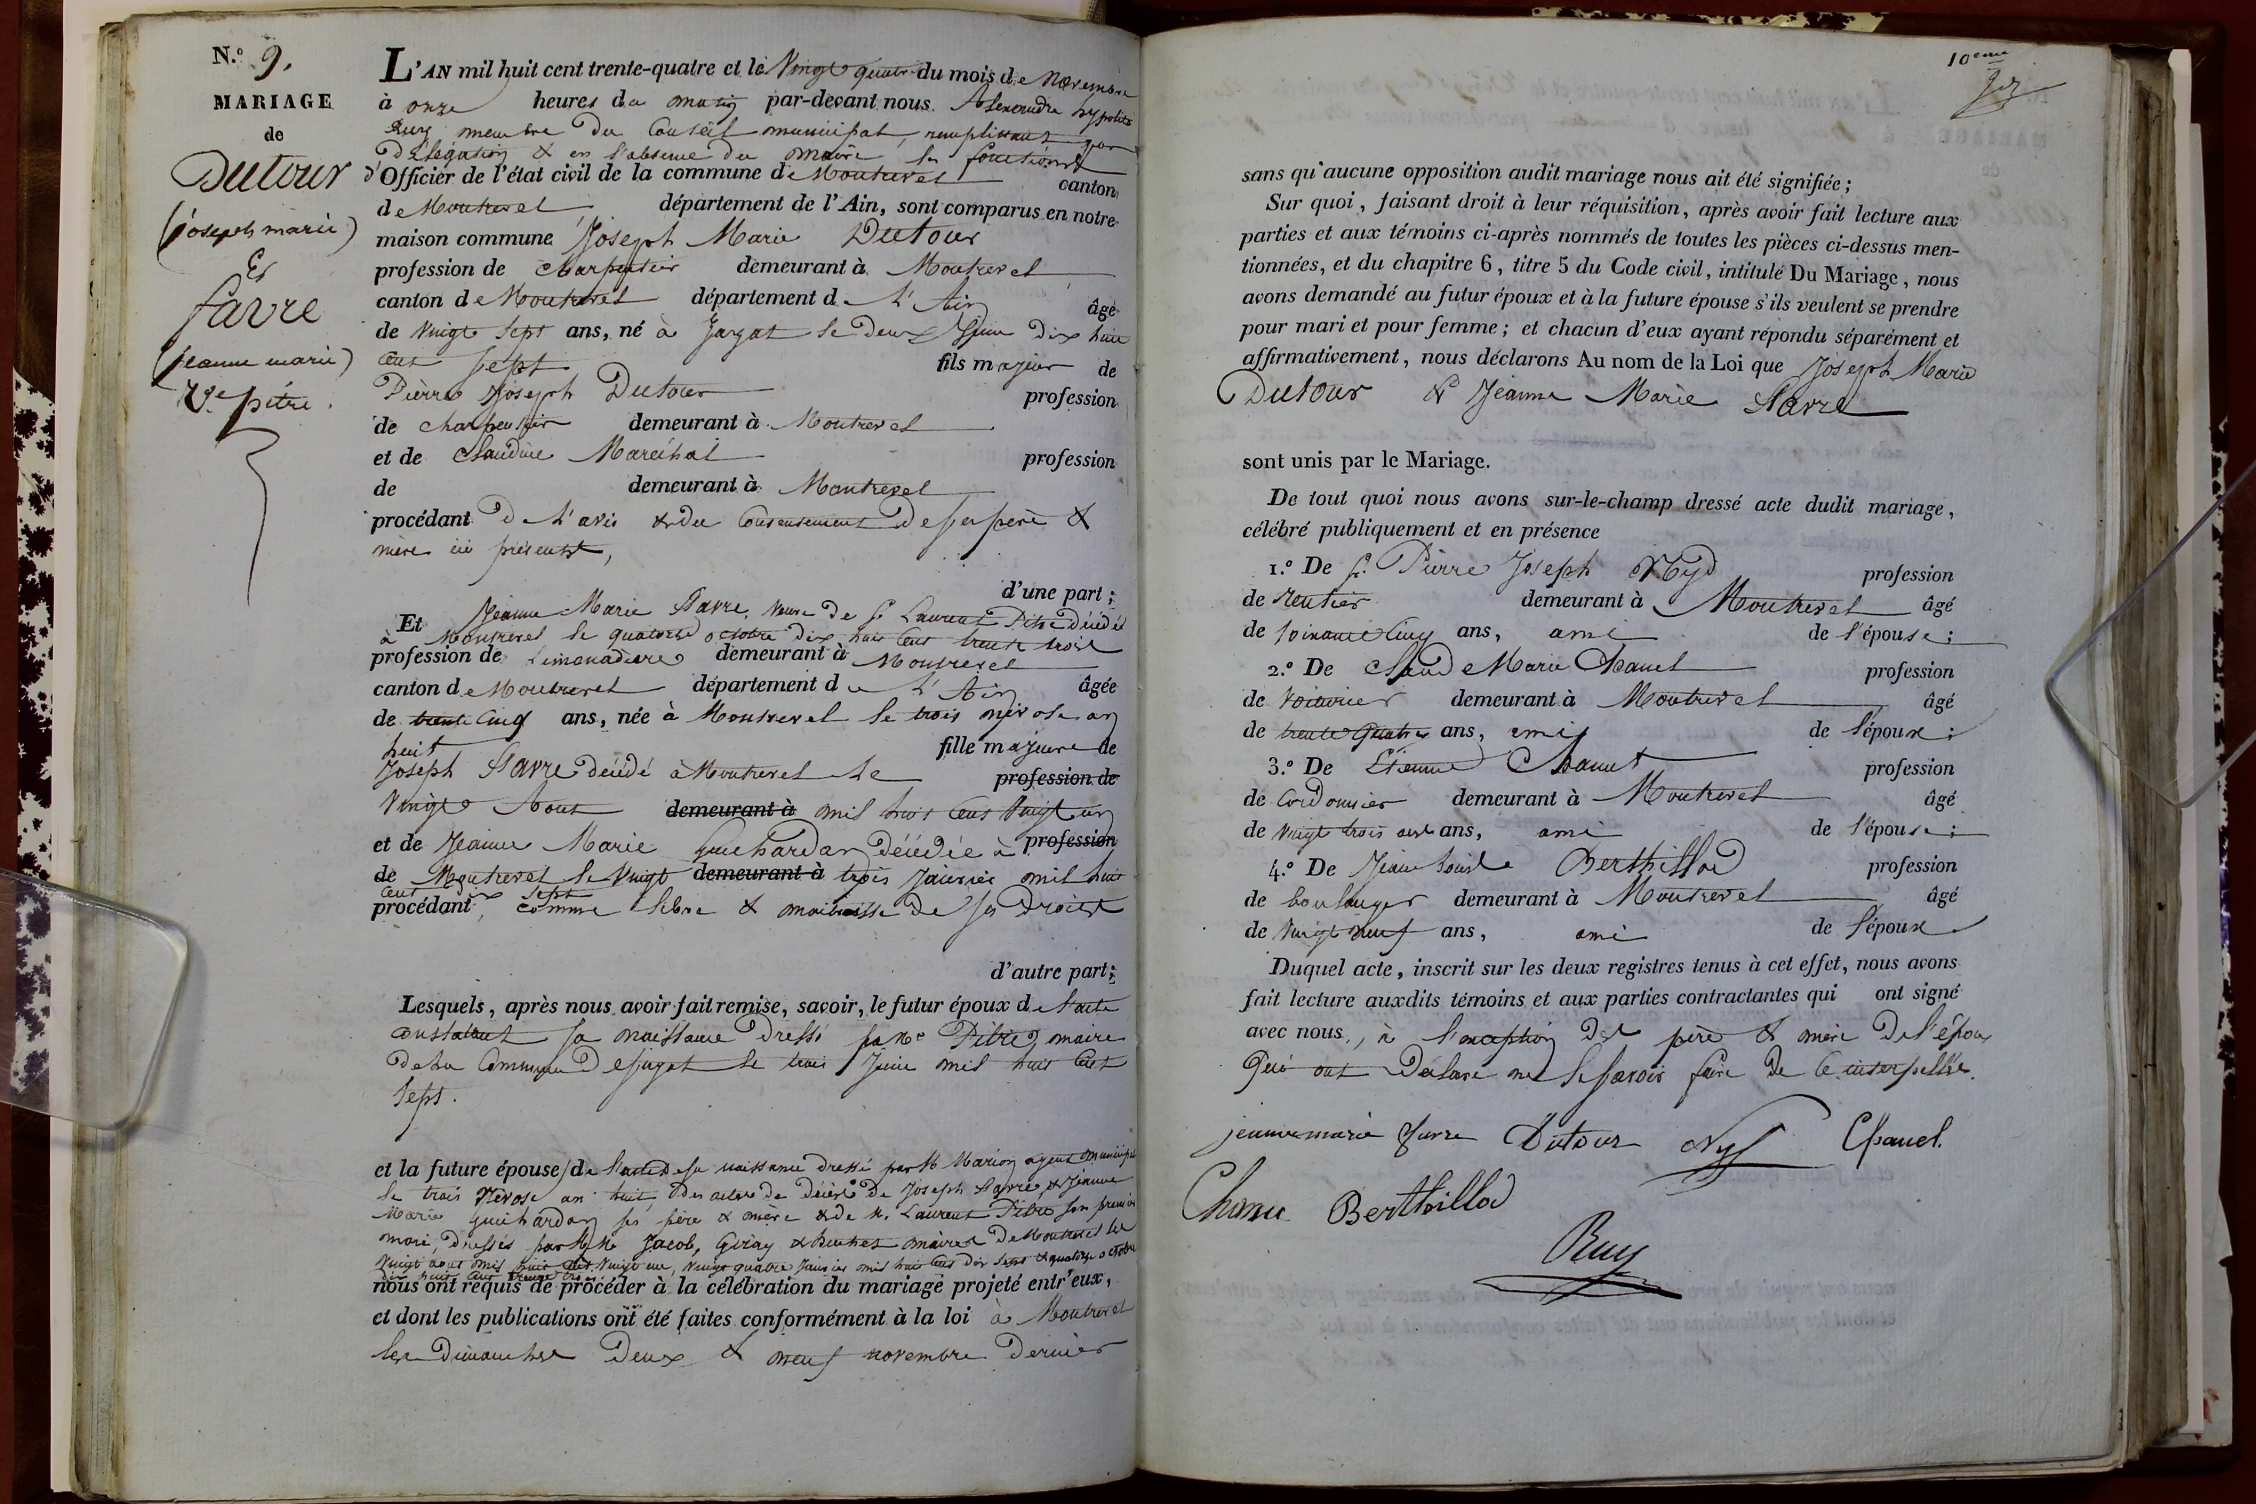 N.º 9.
MARIAGE
de
Dutour
(joseph marie)
Et
favre
(jeanne marie)
Vve pitre.
L'AN mil huit cent trente-quatre et le Vingt quatre du mois de Novembre
à onze heures du matin par-devant nous Alexandre hypolite
Ruy membre du Conseil municipal, remplissant par
Délégation & en l'absence du maire les fonctions
d'Officier de l'état civil de la commune de Montrevel canton
de Montrevel département de l'Ain, sont comparus en notre
maison commune Joseph Marie Dutour
profession de charpentier demeurant à Montrevel
canton de Montrevel département de L'Ain âgé
de Vingt sept ans, né à Jayat le deux Juin dix huit
cent sept fils majeur de
Pierre Joseph Dutour profession
de charpentier demeurant à Montrevel
et de Claudine Maréchal profession
de demeurant à Montrevel
procédant De L'avis & du Consentement De ses père &
mère ici présents,
d'une part ;
Et Jeanne Marie Favre, Veuve De Sr Laurent Pitre Décédé
à Montrevel le quatorze octobre dix huit cent trente trois
profession de Limonadière demeurant à Montrevel
canton de Montrevel département de L'Ain âgée
de trente cinq ans, née à Montrevel le trois nivose an
huit fille majeure de
Joseph Favre décédé à Montrevel le profession de
Vingt Aout demeurant à mil huit Cent Vingt un
et de Jeanne Marie Guichardon Décédée à profession
de Montrevel le Vingt demeurant à trois Janvier mil huit
Cent dix sept
procédant, comme libre & maitresse De ses Droits
d'autre part ;
Lesquels, après nous avoir fait remise, savoir, le futur époux de l'acte
constatant sa naissance Dressé par Mr Pitre maire
De la Commune De Jayat le trois Juin mil huit Cent
Sept.
et la future épouse, de l'acte De sa naissance dressé par Mr Marion agent municipal
le trois Nivose an huit, Des actes de Décès De Joseph Favre, & Jeanne
Marie guichardon ses père & mère & de Sr Laurent Pitre son premier
mari, Dressés par MM Jacob, Giray & maires De Montrevel les
Vingt aout mil huit cent Vingt un, Vingt quatre Janvier mil huit Cent dix Sept & quatorze octobre
dix huit Cent trente trois
nous ont requis de procéder à la célébration du mariage projeté entr'eux,
et dont les publications ont été faites conformément à la loi à Montrevel
les Dimanches Deux & neuf novembre Dernier
10eme
sans qu'aucune opposition audit mariage nous ait été signifiée ;
Sur quoi, faisant droit à leur réquisition, après avoir fait lecture aux
parties et aux témoins ci-après nommés de toutes les pièces ci-dessus men-
tionnées, et du chapitre 6, titre 5 du Code civil, intitulé Du Mariage, nous
avons demandé au futur époux et à la future épouse s'ils veulent se prendre
pour mari et pour femme ; et chacun d'eux ayant répondu séparément et
affirmativement, nous déclarons Au nom de la Loi que Joseph Marie
Dutour & Jeanne Marie Favre
sont unis par le Mariage.
De tout quoi nous avons sur-le-champ dressé acte dudit mariage,
célébré publiquement et en présence
1.º De Sr. Pierre Joseph Nyd profession
de rentier demeurant à Montrevel âgé
de soixante Cinq ans, ami de l'épouse ;
2.º De Claude Marie Chanel profession
de Voiturier demeurant à Montrevel âgé
de trente quatre ans, ami de l'époux ;
3.º De Etienne Chanut profession
de Cordonnier demeurant à Montrevel âgé
de Vingt trois ans, ami de l'épouse ;
4.º De Jean Louis Berthillod profession
de boulanger demeurant à Montrevel âgé
de Vingt neuf ans, ami de l'époux
Duquel acte, inscrit sur les deux registres tenus à cet effet, nous avons
fait lecture auxdits témoins et aux parties contractantes qui ont signé
avec nous, à l'exception Des père & mère De l'époux
Qui ont Déclaré ne le savoir faire De ce interpellés.
jeanne marie favre Dutour Nyd Chanel.
Chanu Berthillod
Ruy